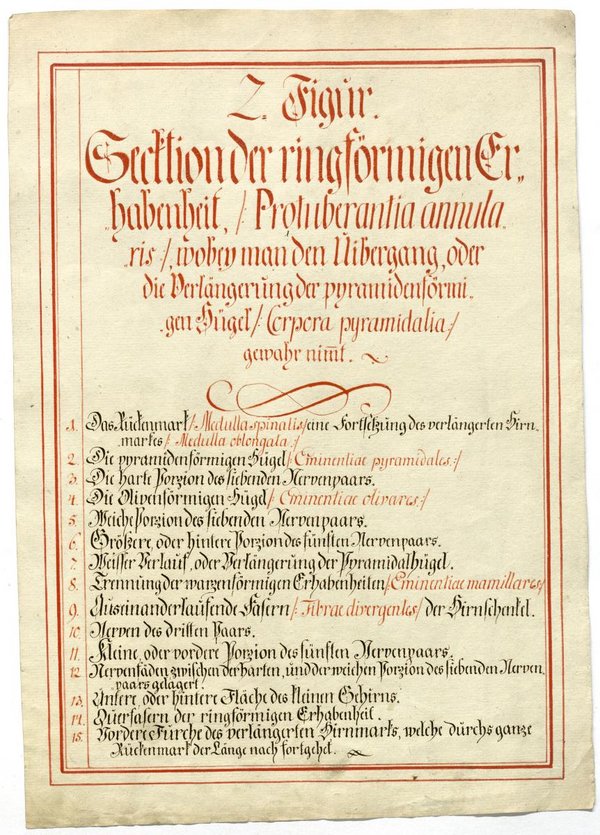 2. Figur.
Secktion der ringförmigen Er„
„habenheit, /: Protuberantia annula„
„ris :/, wobey man den Uibergang, oder
die Verlängerung der pyramidenförmi„
„gen Hügel /: Corpora pyramidalia :/
gewahr nim̅t.
1. Das Rückenmark /: Medulla spinalis :/ eine Fortsetzung des verlängerten Hirn„
„markes /: Medulla oblongata :/
2. Die pyramidenförmigen Hügel /: Eminentiae pyramidales :/
3. Die harte Porzion des siebenden Nervenpaars.
4. Die Olivenförmigen Hügel /: Eminentiae olivares :/
5. Weiche Porzion des siebenden Nervenpaars.
6. Größere, oder hintere Porzion des fünften Nervenpaars.
7. Weisser Verlauf, oder Verlängerung der Pyramidalhügel.
8. Trennung der warzenförmigen Erhabenheiten /: Eminentiae mamillares :/
9. Auseinanderlaufende Fasern /: Fibrae divergentes :/ der Hirnschenkel.
10. Nerven des dritten Paars.
11. Kleine, oder vordere Porzion des fünften Nervenpaars.
12. Nervenfäden zwischen der harten, und der weichen Porzion des siebenden Nerven„
„paars gelagert.
13. Untere, oder hintere Fläche des kleinen Gehirns.
14. Querfasern der ringförmigen Erhabenheit.
15. Vordere Furche des verlängerten Hirnmarks, welche durchs ganze
Rückenmark der Länge nach fortgehet.